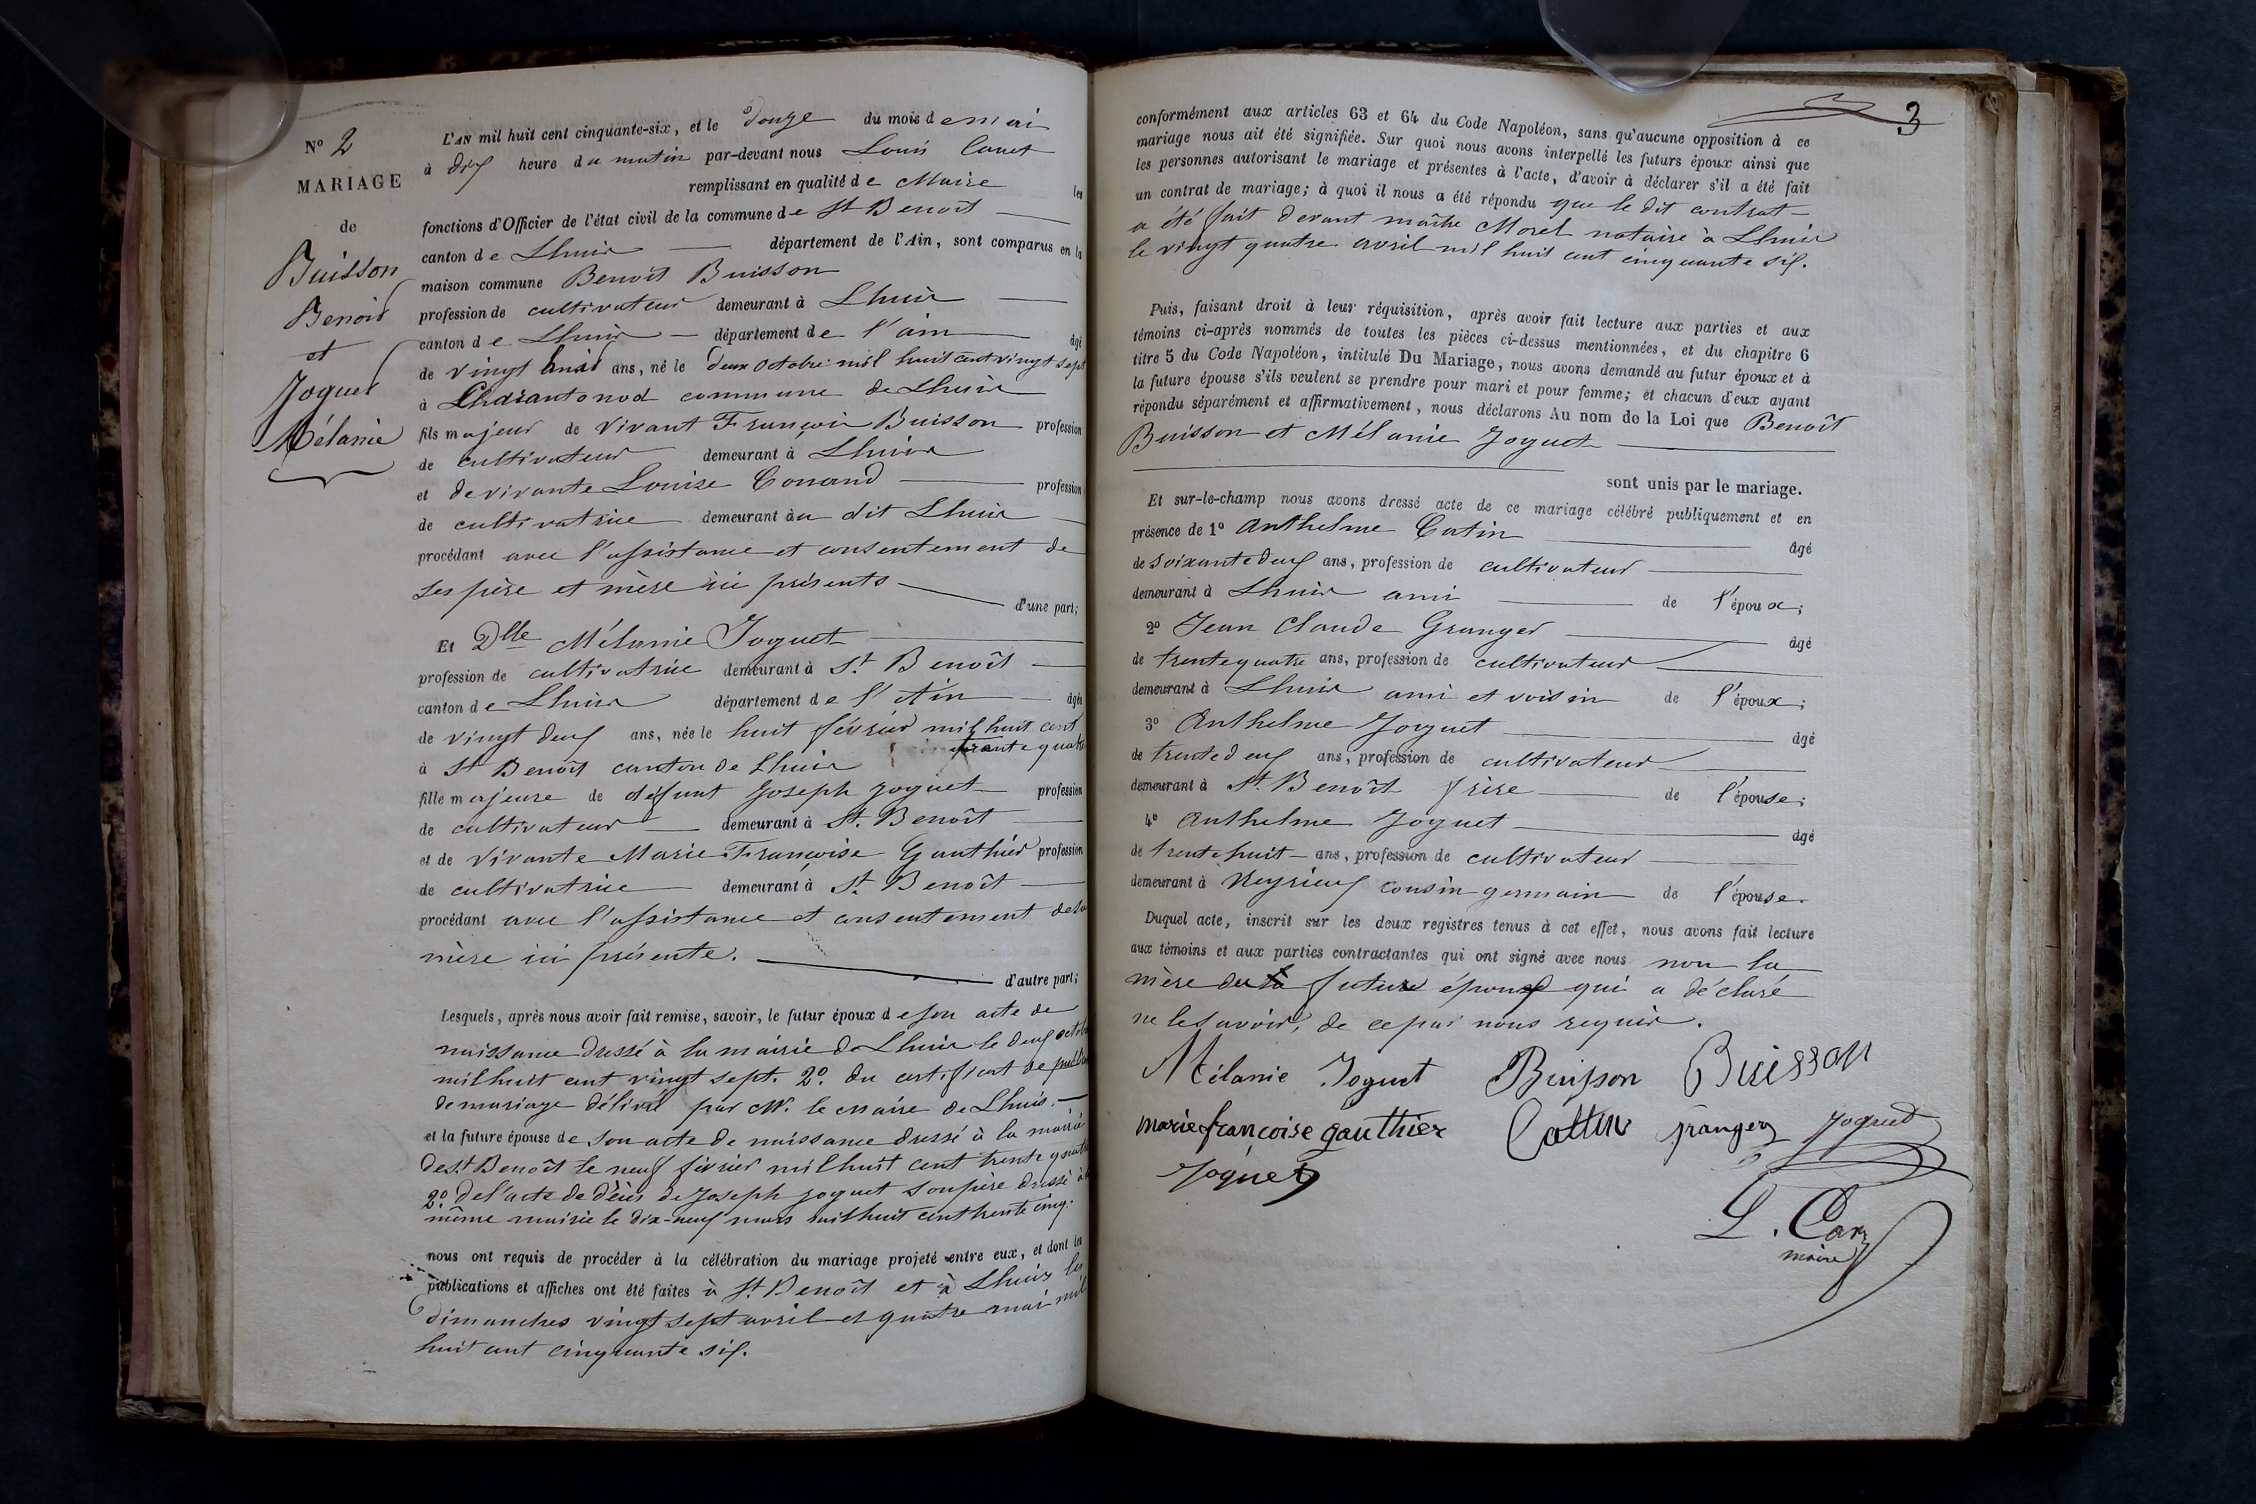 N° 2
MARIAGE
de
Buisson
Benoit
et
Joguet
Mélanie
L'AN mil huit cent cinquante-six, et le douze du mois de mai
à dix heure du matin par-devant nous Louis
remplissant en qualité de Maire les
fonctions d'Officier de l'état civil de la commune de St Benoît
canton de Lhuis département de l'Ain, sont comparus en la
maison commune Benoît Buisson
profession de cultivateur demeurant à Lhuis
canton de Lhuis département de l'ain âgé
de vingt huit ans, né le deux octobre mil huit cent vingt sept
à commune de Lhuis
fils majeur de vivant François Buisson profession
de cultivateur demeurant à Lhuis
et de vivante Louise Conand profession
de cultivatrice demeurant au dit Lhuis
procédant avec l'assistance et consentement de
ses père et mère ici présents
d'une part;
Et Dlle Mélanie Joguet
profession de cultivatrice demeurant à St Benoît
canton de Lhuis département de l'Ain âgée
de vingt deux ans, née le huit février mil huit cent
trente quatre
à St Benoît canton de Lhuis
fille majeure de défunt Joseph Joguet profession
de cultivateur demeurant à St. Benoît
et de vivante Marie Françoise Gauthier profession
de cultivatrice demeurant à St. Benoît
procédant avec l'assistance et consentement de sa
mère ici présente.
d'autre part;
Lesquels, après nous avoir fait remise, savoir, le futur époux de son acte de
naissance dressé à la mairie de Lhuis le deux octobre
mil huit cent vingt sept. 2° du certificat de
de mariage délivré par M. le maire de Lhuis.
et la future épouse de son acte de naissance dressé à la mairie
de St Benoît le neuf février mil huit cent trente quatre
2° de l'acte de décès de Joseph Joguet son père dressé à la
même mairie le dix-neuf mars mil huit cent trente cinq.
nous ont requis de procéder à la célébration du mariage projeté entre eux, et dont les
publications et affiches ont été faites à St Benoît et à Lhuis les
dimanches vingt sept avril et quatre mai mil
huit cent cinquante six.
3
conformément aux articles 63 et 64 du Code Napoléon, sans qu'aucune opposition à ce
mariage nous ait été signifiée. Sur quoi nous avons interpellé les futurs époux ainsi que
les personnes autorisant le mariage et présentes à l'acte, d'avoir à déclarer s'il a été fait
un contrat de mariage; à quoi il nous a été répondu que le dit contrat
a été fait devant maître Morel notaire à Lhuis
le vingt quatre avril mil huit cent cinquante six.
Puis, faisant droit à leur réquisition, après avoir fait lecture aux parties et aux
témoins ci-après nommés de toutes les pièces ci-dessus mentionnées, et du chapitre 6
titre 5 du Code Napoléon, intitulé Du Mariage, nous avons demandé au futur époux et à
la future épouse s'ils veulent se prendre pour mari et pour femme; et chacun d'eux ayant
répondu séparément et affirmativement, nous déclarons Au nom de la Loi que Benoît
Buisson et Mélanie Joguet
sont unis par le mariage.
Et sur-le-champ nous avons dressé acte de ce mariage célébré publiquement et en
présence de 1° Anthelme Catin âgé
de soixante deux ans, profession de cultivateur
demeurant à Lhuis ami de l'époux;
2° Jean Claude Granger âgé
de trente quatre ans, profession de cultivateur
demeurant à Lhuis ami et voisin de l'époux;
3° Anthelme Joguet âgé
de trente deux ans, profession de cultivateur
demeurant à St. Benoît frère de l'épouse;
4° Anthelme Joguet âgé
de trente huit ans, profession de cultivateur
demeurant à cousin germain de l'épouse.
Duquel acte, inscrit sur les deux registres tenus à cet effet, nous avons fait lecture
aux témoins et aux parties contractantes qui ont signé avec nous non la
mère du futur époux qui a déclaré
ne le savoir, de ce par nous requis.
Mélanie Joguet Buisson Buisson
marie francoise gauthier Cattin granger Joguet
Joguet
L. 
maire